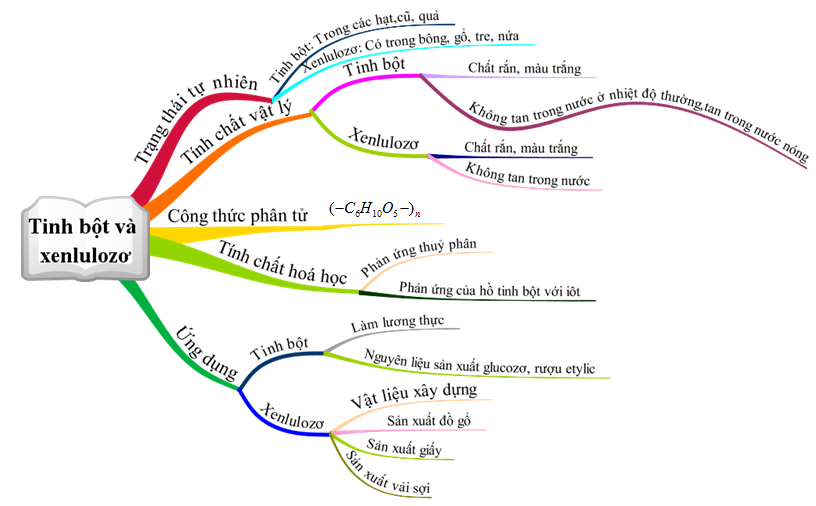 Tinh bột và
xenlulozơ
Trạng thái tự nhiên
Tinh bột: Trong các hạt,cũ, quả
Xenlulozơ: Có trong bông, gổ, tre, nứa
Tính chất vật lý
Tinh bột
Chất rắn, màu trắng
Không tan trong nước ở nhiệt độ thường,tan trong nước nóng
Xenlulozơ
Chất rắn, màu trắng
Không tan trong nước
Công thức phân tử
(−C₆H₁₀O₅−)ₙ
Tính chất hoá học
Phản ứng thuỷ phân
Phản ứng của hồ tinh bột với iôt
Ứng dụng
Tinh bột
Làm lương thực
Nguyên liệu sản xuất glucozơ, rượu etylic
Xenlulozơ
Vật liệu xây dựng
Sản xuất đồ gổ
Sản xuất giấy
Sản xuất vải sợi